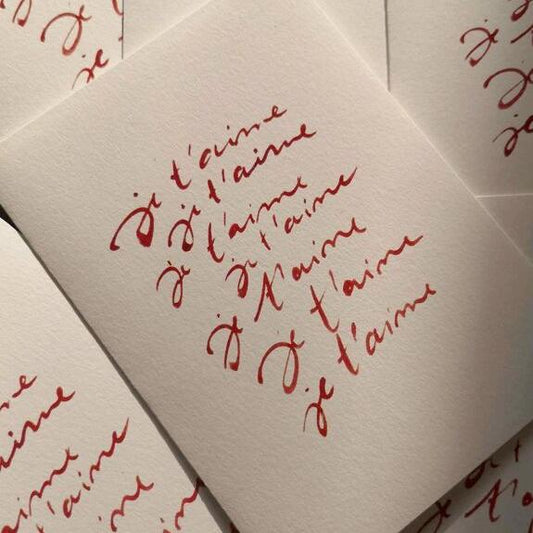 je t'aime
je t'aime
je t'aime
je t'aime
je t'aime
je t'aime
je t'aime